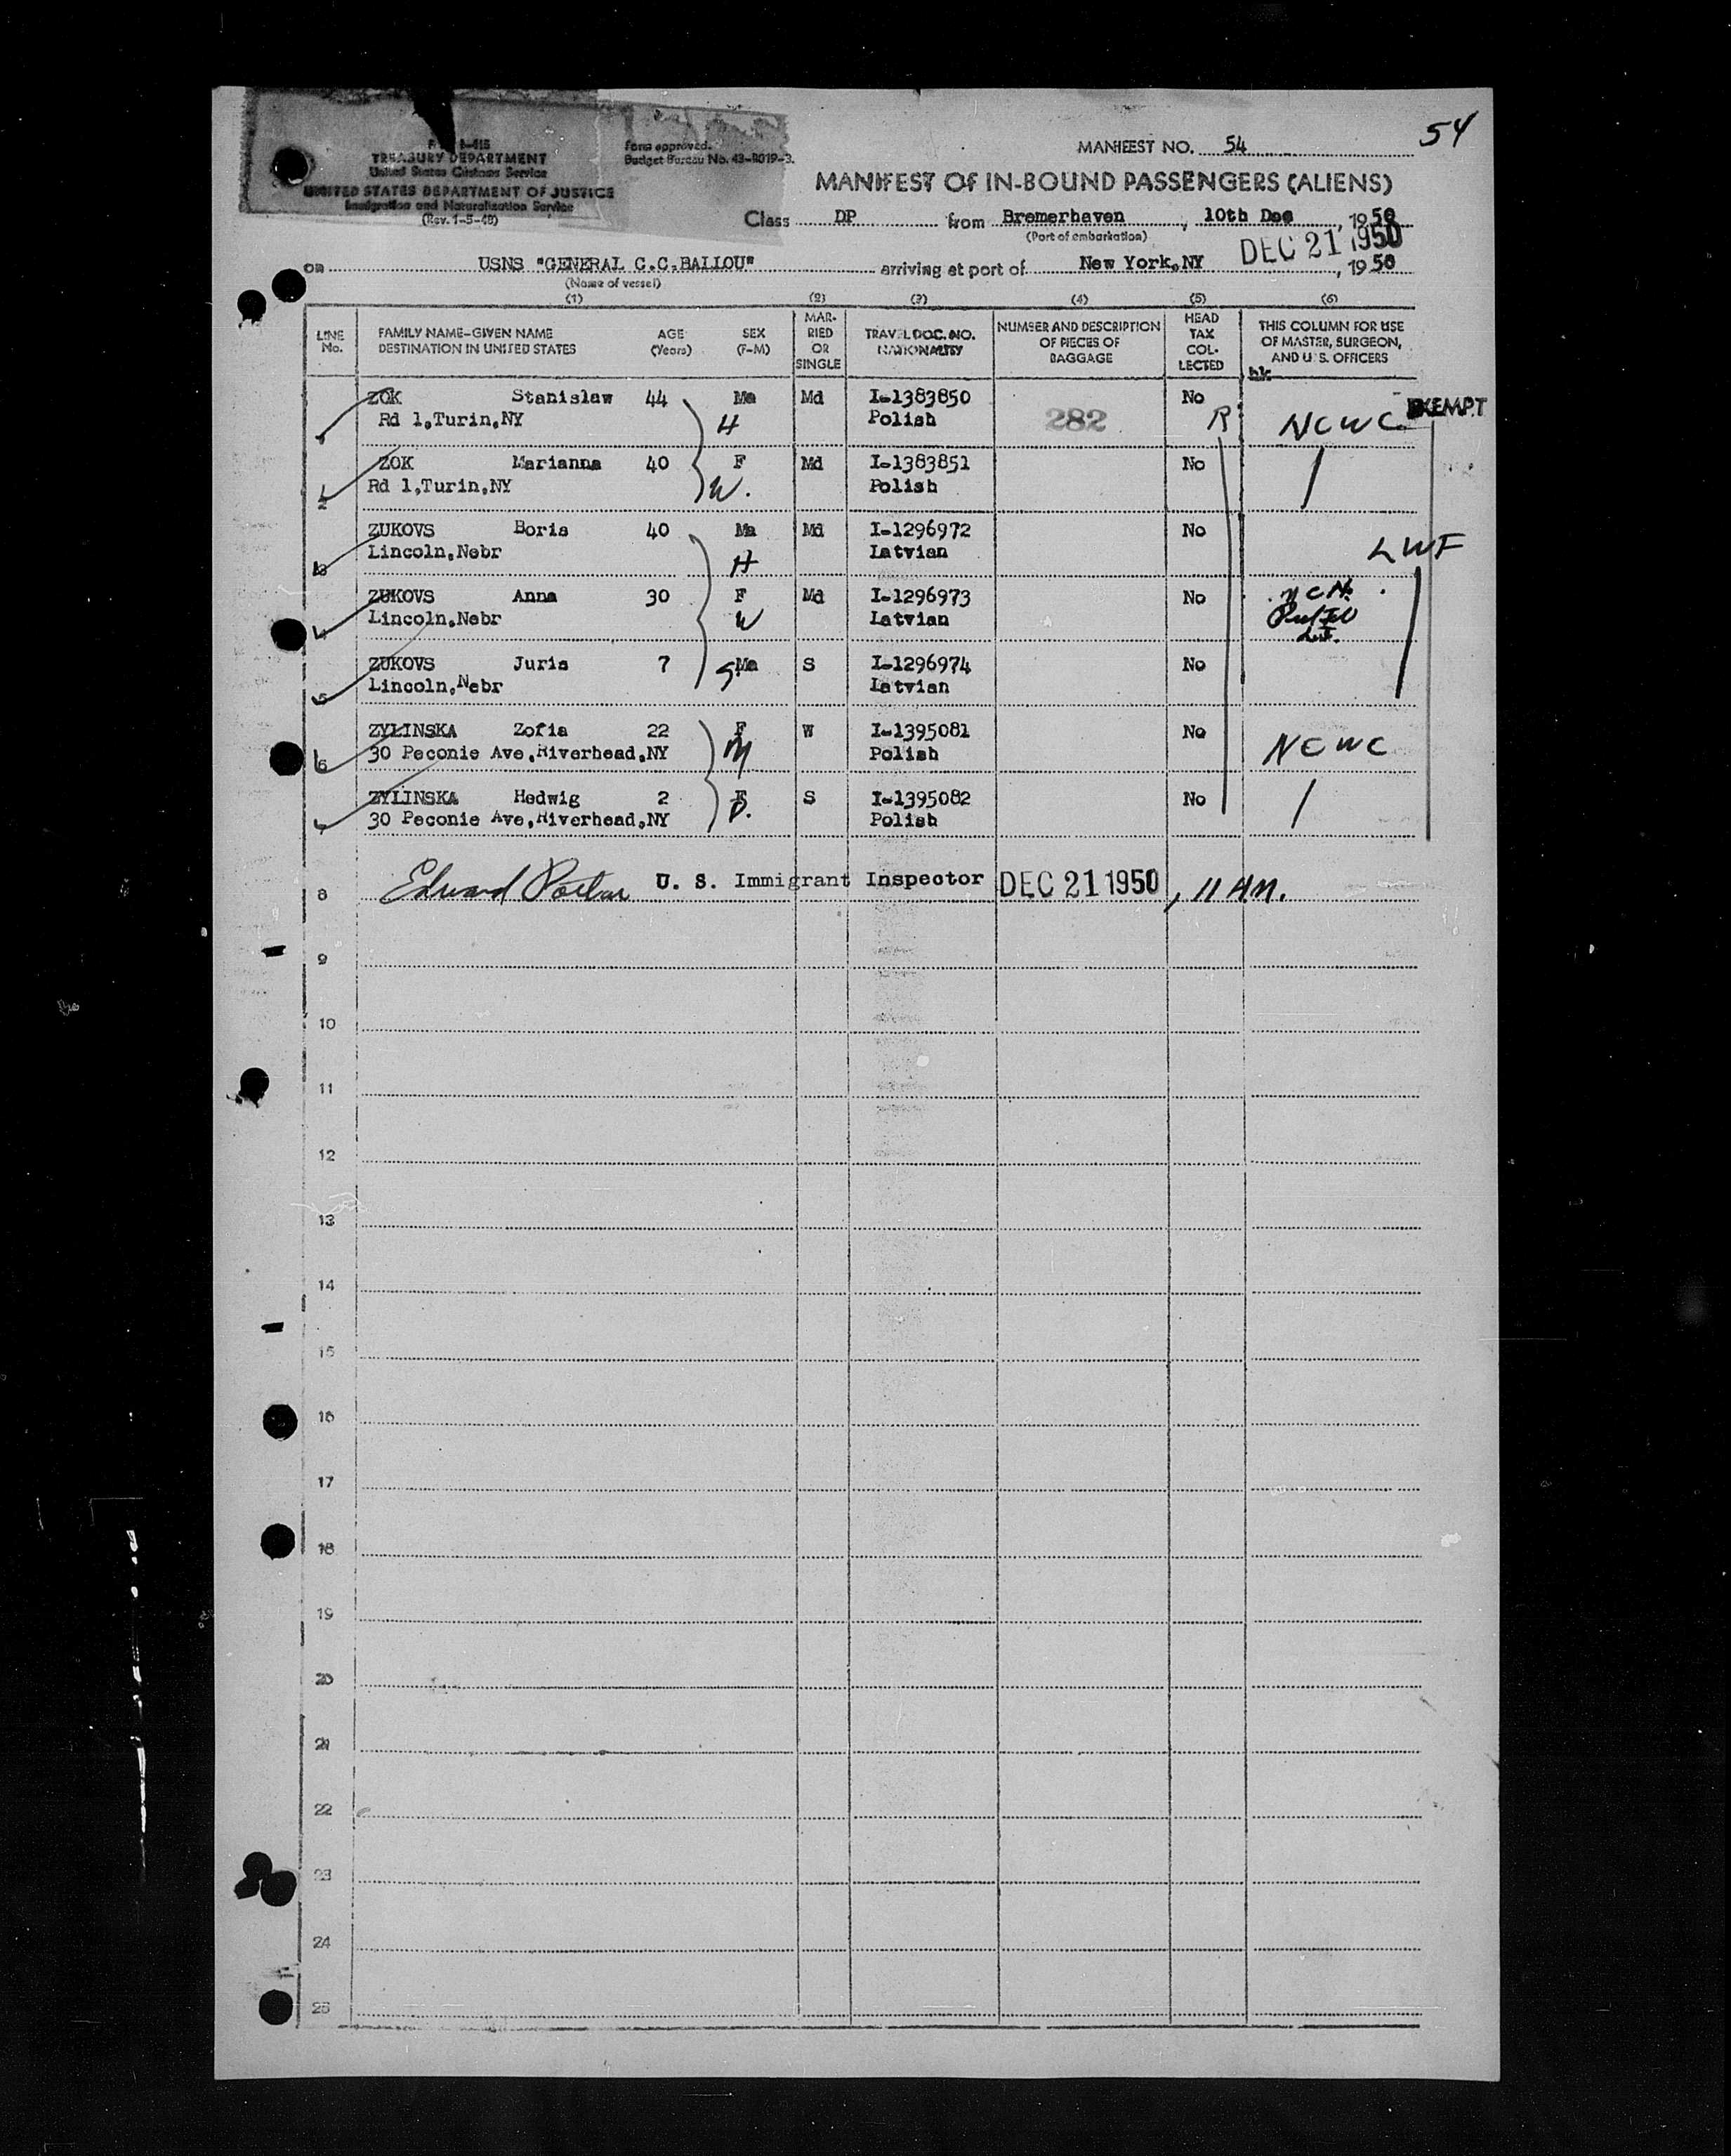 54
MANIFEST NO. 54
I-415
TREASURY DEPARTMENT
United States Customs Service
UNITED STATES DEPARTMENT OF JUSTICE
Immigration and Naturalization Service
(Rev. 1-5-48)
Form approved.
Budget Bureau No. 43-R019-3.
MANIFEST OF IN-BOUND PASSENGERS (ALIENS)
Class DP from Bremerhaven, 10th Dec, 1950
(Port of embarkation)
DEC 21 1950
on USNS "GENERAL C.C.BALLOU" arriving at port of New York,NY, 1950
(Name of vessel)
(1) (2) (3) (4) (5) (6)
LINE No. FAMILY NAME-GIVEN NAME DESTINATION IN UNITED STATES AGE (Years) SEX (F-M) MARRIED OR SINGLE TRAVEL DOC. NO. NATIONALITY NUMBER AND DESCRIPTION OF PIECES OF BAGGAGE HEAD TAX COLLECTED THIS COLUMN FOR USE OF MASTER, SURGEON, AND U. S. OFFICERS
hk
1 ZOK Stanislaw 44 Ma Md I-1383850 No EXEMPT
Rd 1,Turin,NY H Polish 282 R NCWC
2 ZOK Marianna 40 F Md I-1383851 No
Rd 1,Turin,NY W. Polish
3 ZUKOVS Boris 40 Ma Md I-1296972 No
Lincoln,Nebr H Latvian LWF
4 ZUKOVS Anna 30 F Md I-1296973 No
Lincoln,Nebr W Latvian
5 ZUKOVS Juris 7 S. Ma S I-1296974 No
Lincoln,Nebr Latvian
6 ZYLINSKA Zofia 22 F W I-1395081 No
30 Peconie Ave,Riverhead,NY M Polish NCWC
7 ZYLINSKA Hedwig 2 F S I-1395082 No
30 Peconie Ave,Riverhead,NY D. Polish
8 Edward U. S. Immigrant Inspector DEC 21 1950, 11 AM.
9
10
11
12
13
14
15
16
17
18
19
20
21
22
23
24
25